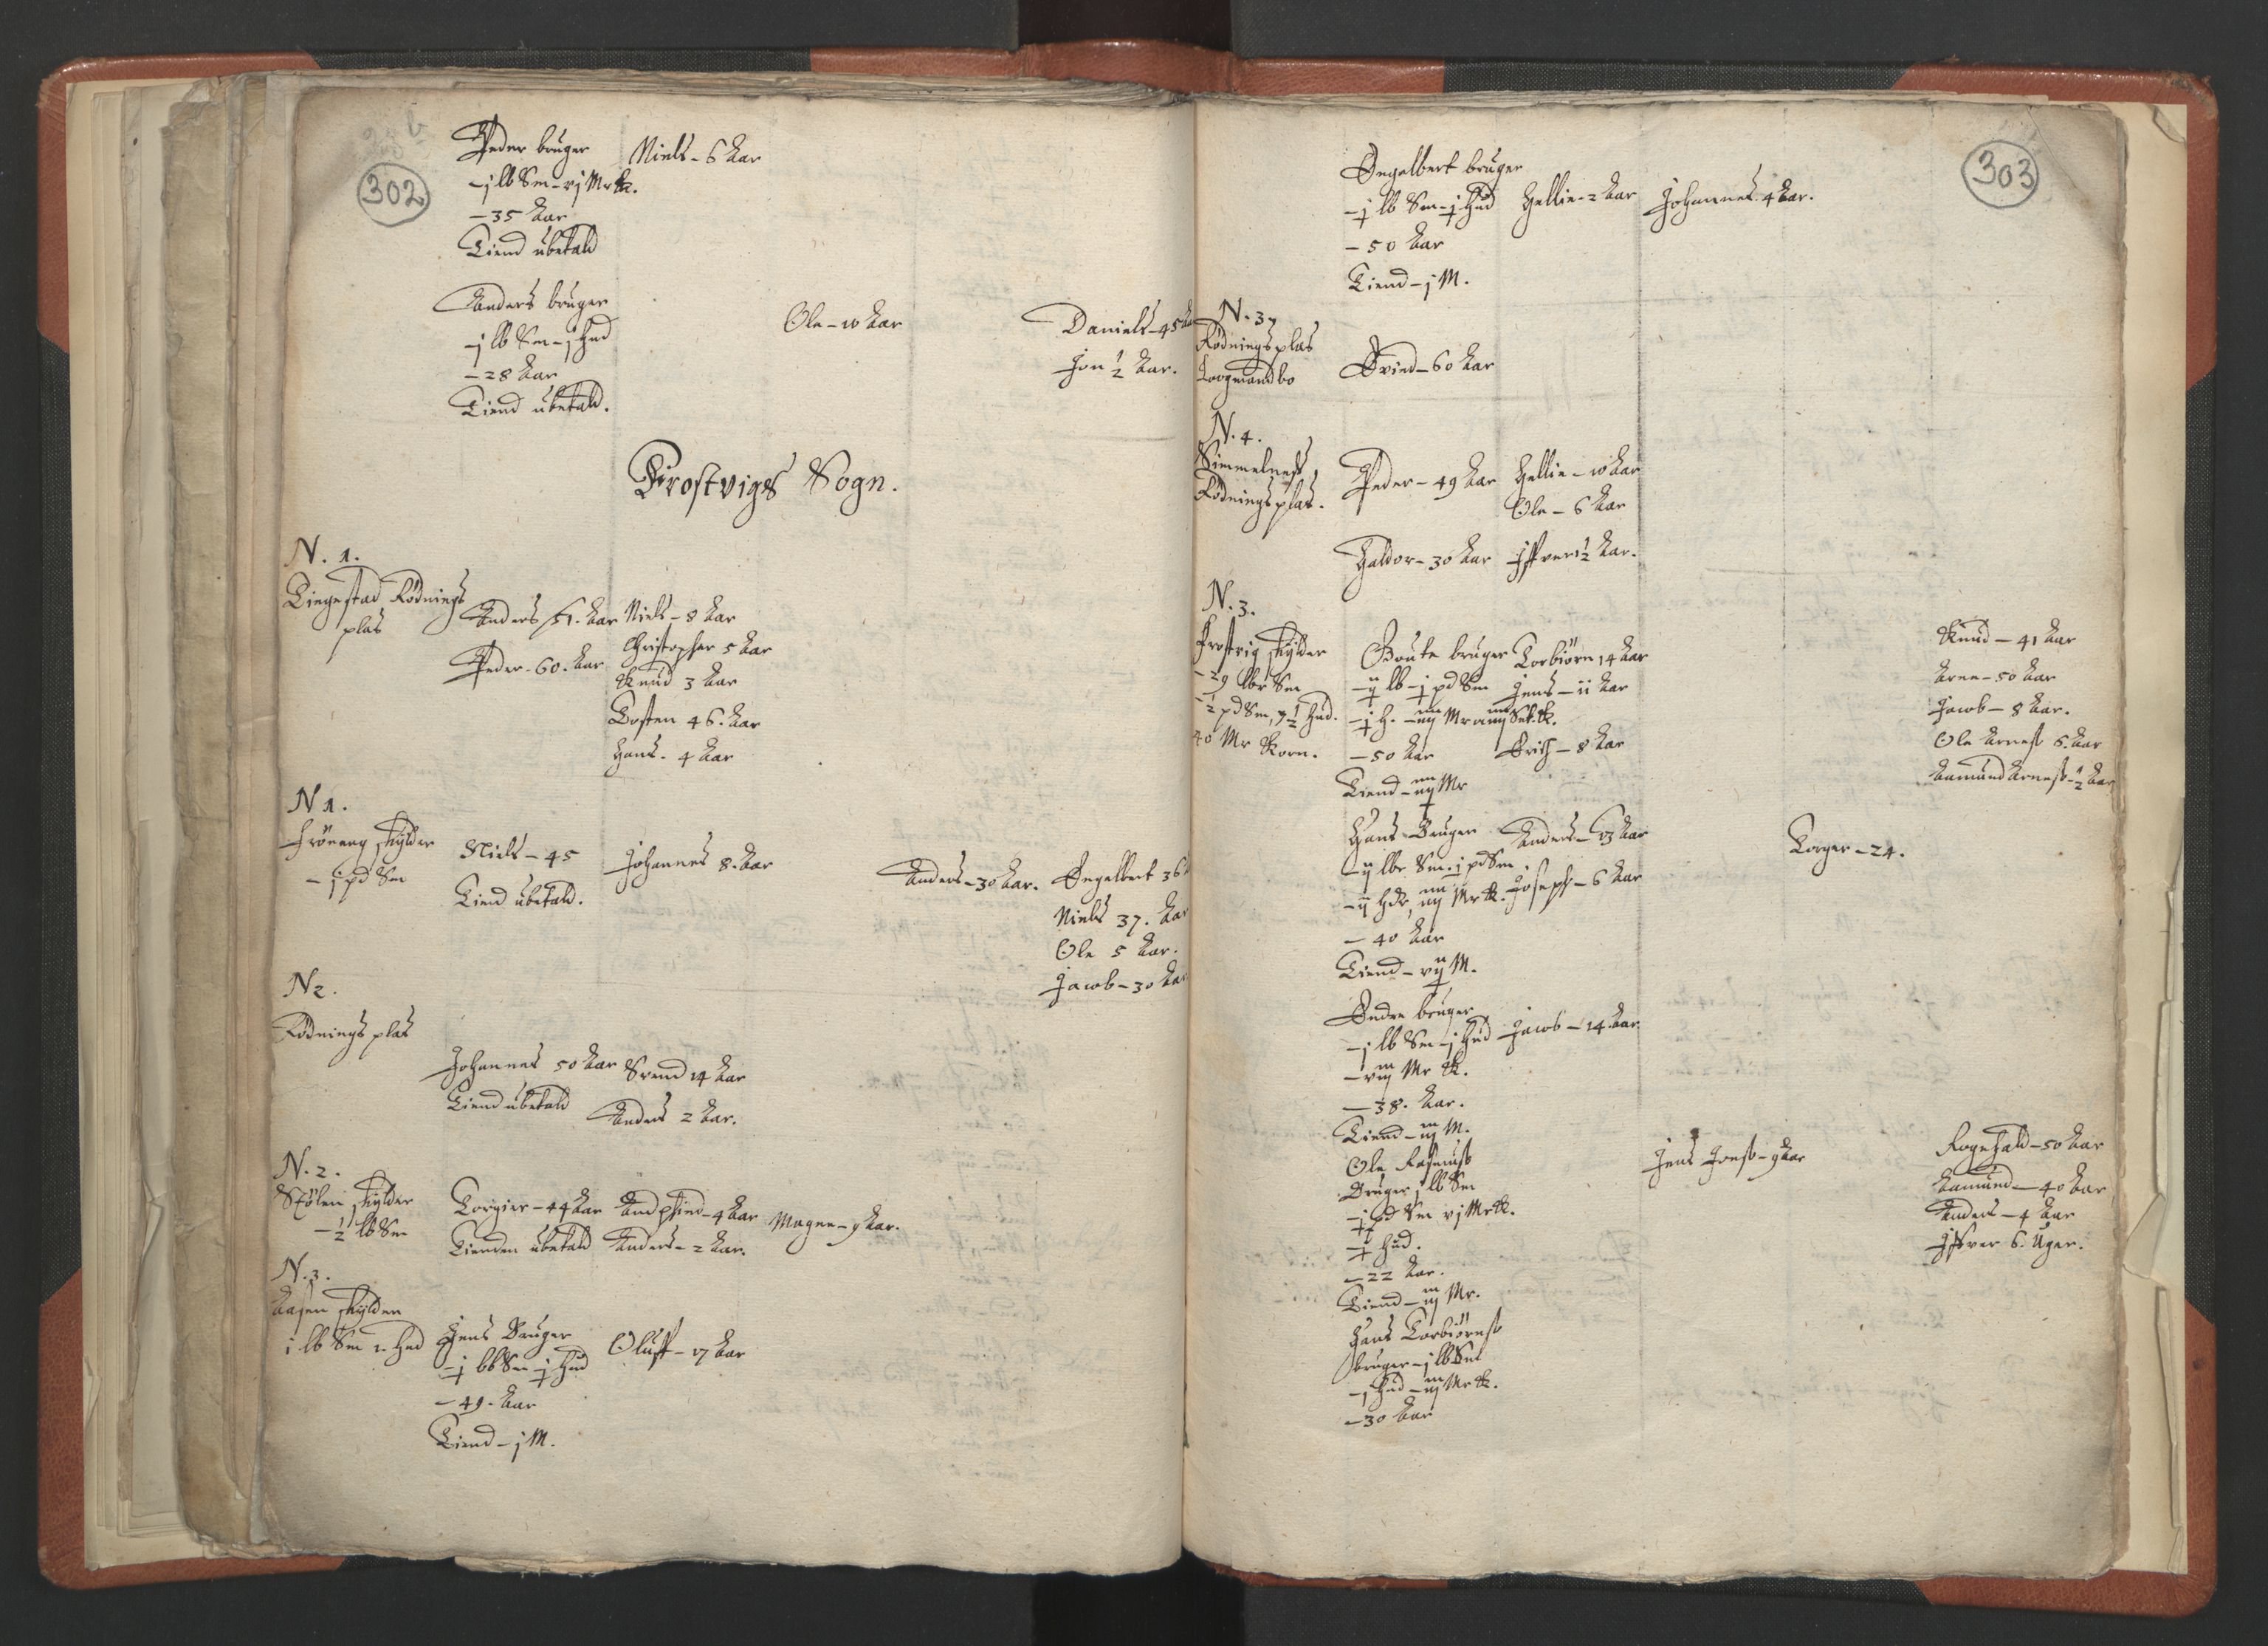 302
Peder bruger
Niels - 6 Aar
- j lb Sm - vj Mrk.
- 35 Aar
Tiend ubetald
Anders bruger
- j lb Sm - j Hud
- 28 Aar
Tiend ubetald.
Ole - 10 Aar
Daniels - 45
Jon ½ Aar.
Frostvigs Sogn.
N. 1.
Tingestad Rødnings
plads
Anders 51. Aar
Peder - 60. Aar
Niels - 8 Aar
Christopher 5 Aar
Knud 3 Aar
Tosten 46. Aar
Hans. 4 Aar
N 1.
skylder
- j pd Sm
Niels - 45
Tiend ubetald.
Johannes 8. Aar
Anders - 30 Aar.
Engelbert 36
Niels 37. Aar
Ole 5 Aar.
Jacob - 30 Aar
N 2.
Rødnings plads
Johannes 50 Aar
Tiend ubetald
Svend 14 Aar
Anders 2 Aar.
N. 2.
Stølen skylder
- ½ lb Sm
Torgier - 44 Aar
Tienden ubetald
Amdphind - 4 Aar
Anders - 2 Aar.
Magne - 9 Aar.
N. 3.
Aasen skylder
1 lb Sm 1 Hud
Jens Bruger
- j lb Sm - j Hud
- 49 - Aar
Tiend - j M.
Oluff - 17 Aar
303
Engelbert bruger
- j lb Sm - j Hud
- 50 Aar
Tiend - j M.
Hellie - 2 Aar
Johannes. 4 Aar.
N. 37
Rødnings plads
Ørind - 60 Aar
N. 4.
Simmelnes
Rødnings plads.
Peder - 49 Aar
Haldor - 30 Aar
Hellie - 10 Aar
Ole - 6 Aar
Iffver ½ Aar.
N. 3.
Frostvig skylder
- 29 lbr Sm
- ½ pd Sm, 7½ Hud.
40 Mr Korn.
Goute bruger
- ij lb - j pd Sm
- j H. - iiij Mr
- 50 Aar
Tiend - iiij Mr
Torbiørn 14 Aar
Jens - 11 Aar
Erich - 8 Aar
Knud - 41 Aar
Arne - 50 Aar
Jacob - 8 Aar.
Ole Arness 6. Aar
Aamund Arness - ½ Aar
Hans Bruger
- ij lbr Sm. j pd Sm
- ij Hdr, iiij Mrk.
- 40 Aar
Tiend - vij M.
Anders - 13 Aar
Joseph - 6 Aar
Torger - 24.
Endre bruger
- j lb Sm - j Hud
- viij Mr K.
- 38. Aar.
Tiend - iij M.
Jacob - 14 Aar
Ole Rasmuss
Bruger j lb Sm
- j pd Sm vj Mrk.
- j Hud.
- 22 Aar.
Tiend - iij Mr.
Jens Jonss - 9 Aar
Rognhald - 50 Aar
Aamund - 40 Aar
Anders - 4 Aar
Iffver 6. Uger.
Hans Torbiørnss
bruger - j lb Sm
- j Hud - iij Mrk.
- 30 Aar